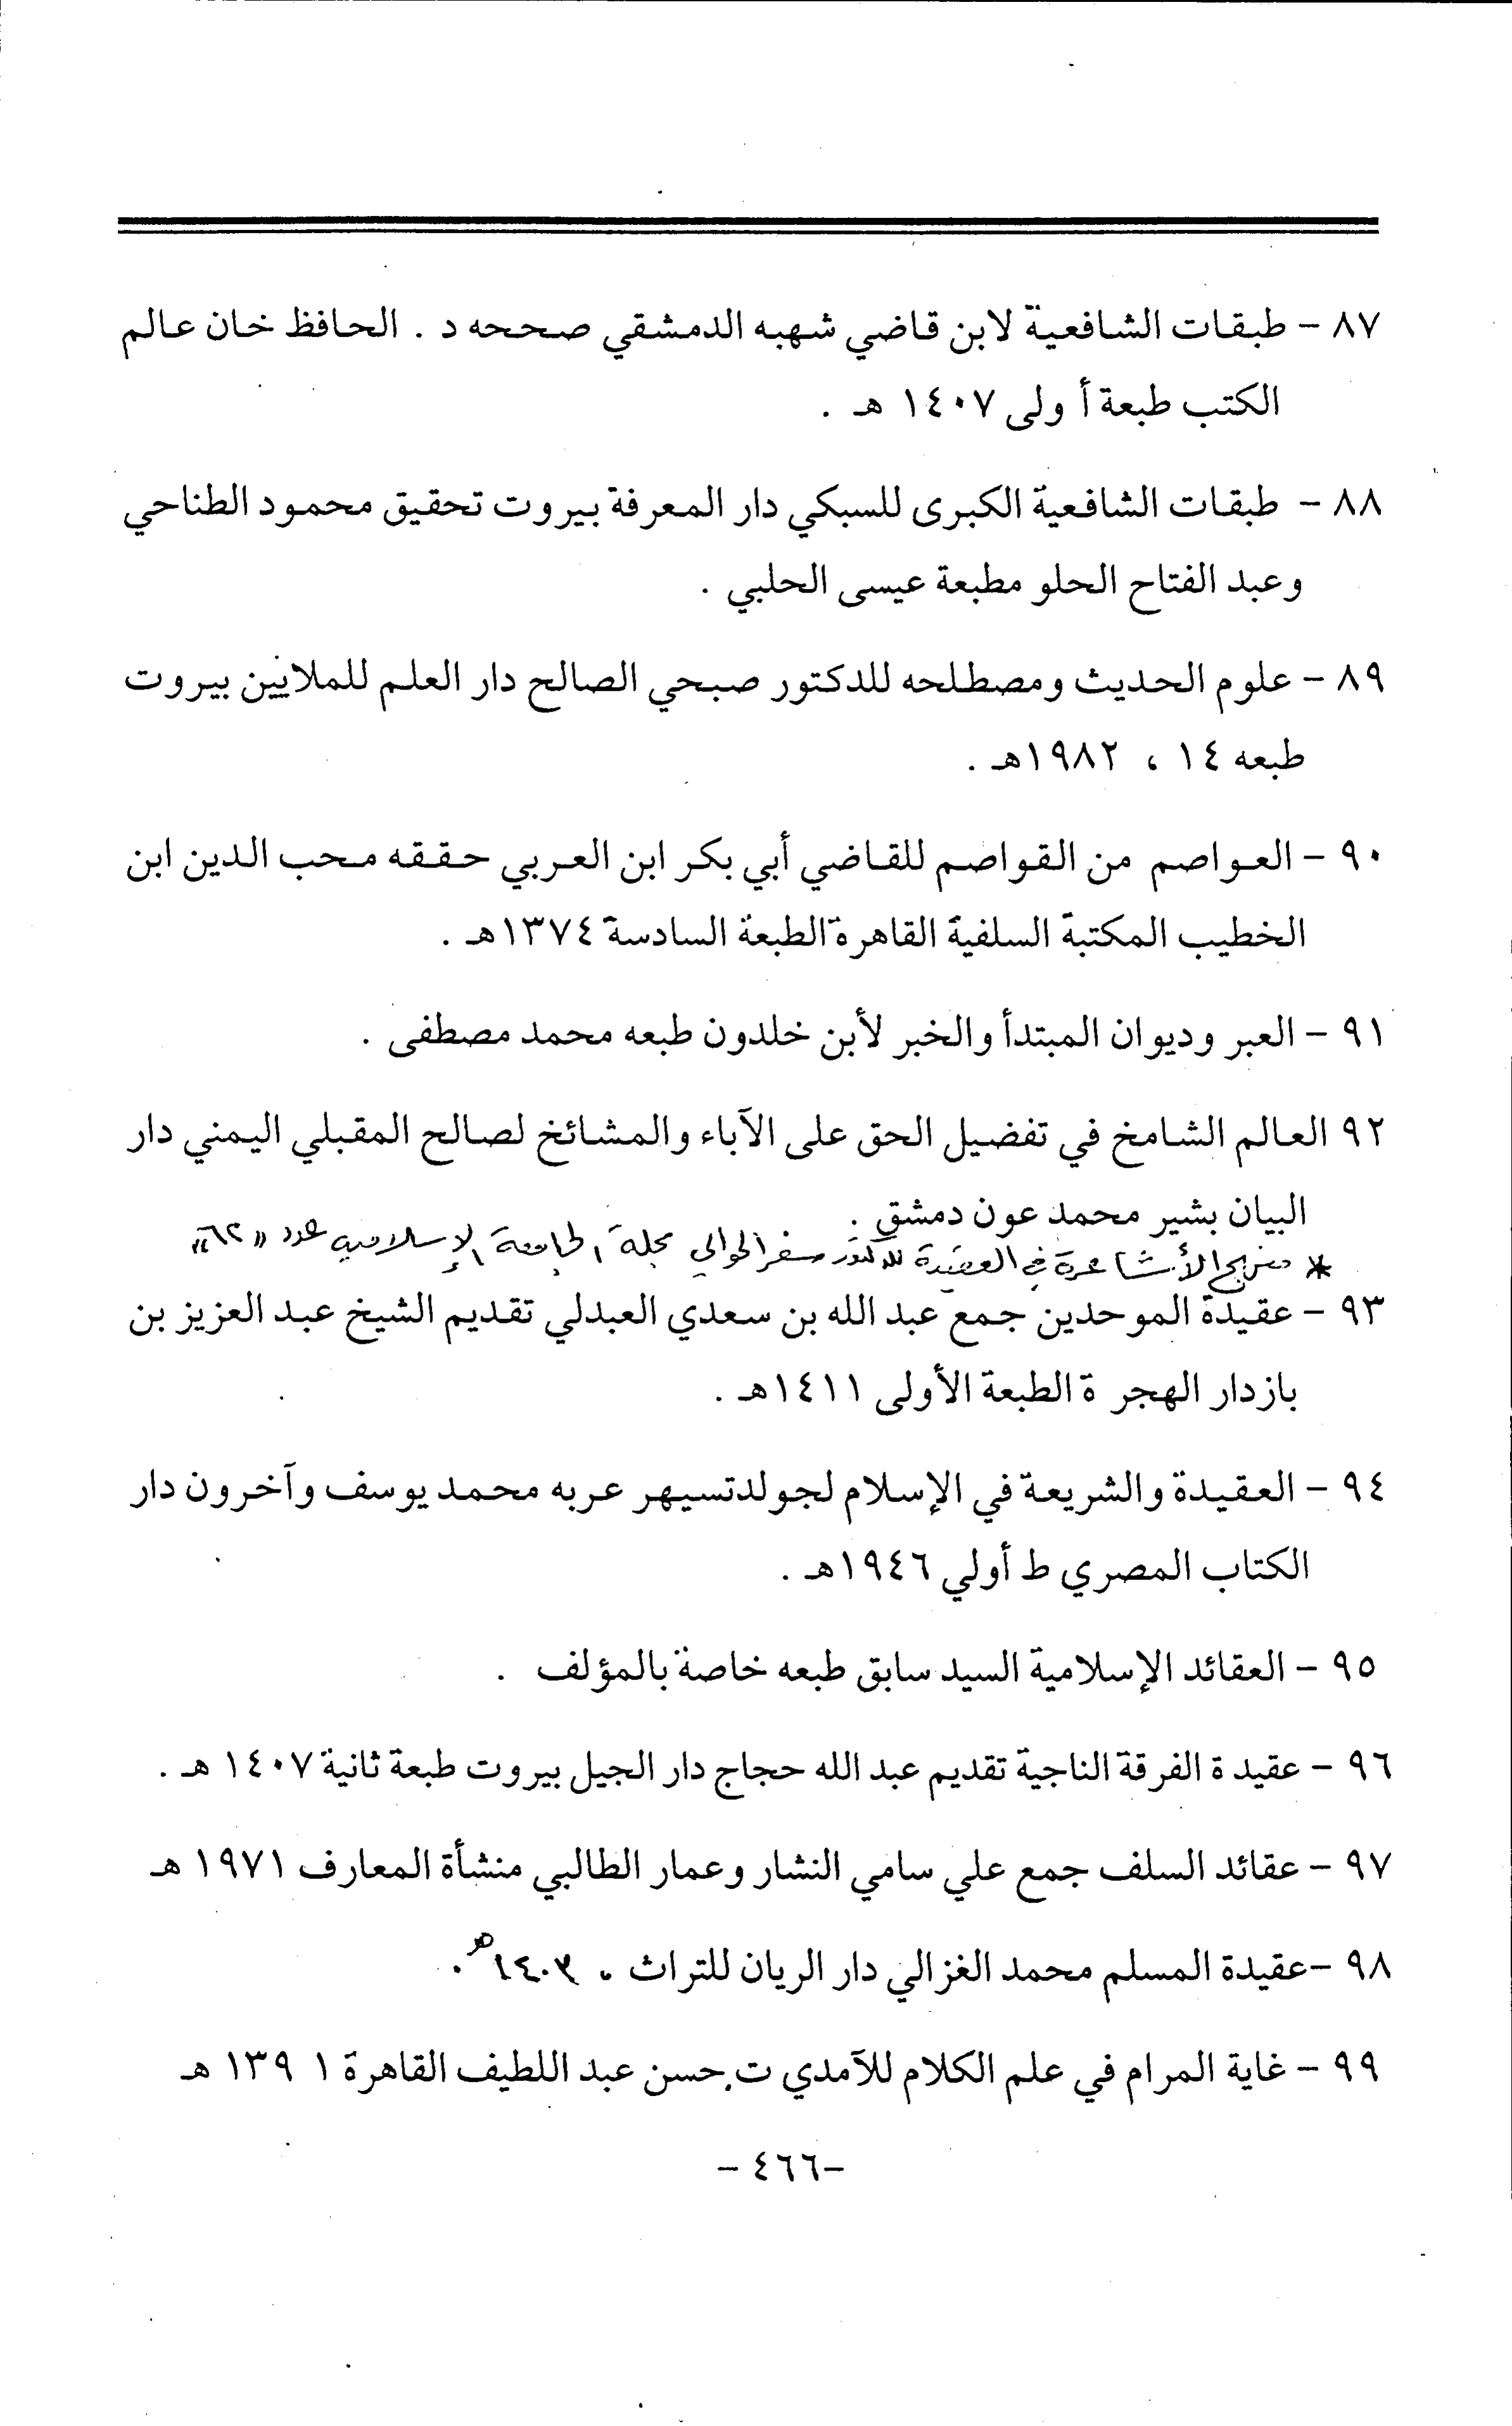 ٨٧ - طبقات الشافعية لابن قاضي شهبه الدمشقي صححه د . الحافظ خان عالم
الكتب طبعة أ ولى ١٤٠٧ هـ .
٨٨ - طبقات الشافعية الكبرى للسبكي دار المعرفة بيروت تحقيق محمود الطناحي
وعبد الفتاح الحلو مطبعة عيسى الحلبي .
٨٩ - علوم الحديث ومصطلحه للدكتور صبحي الصالح دار العلم للملايين بيروت
طبعه ١٤ ، ١٩٨٢هـ .
٩٠ - العواصم من القواصم للقاضي أبي بكر ابن العربي حققه محب الدين ابن
الخطيب المكتبة السلفية القاهرة الطبعة السادسة ١٣٧٤هـ .
٩١ - العبر وديوان المبتدأ والخبر لأبن خلدون طبعه محمد مصطفى .
٩٢ العالم الشامخ في تفضيل الحق على الآباء والمشائخ لصالح المقبلي اليمني دار
البيان بشير محمد عون دمشق .
* منهج الأشاعرة في العقيدة للدكتور سفر الحوالي مجلة الجامعة الإسلامية عدد «٦٢»
٩٣ - عقيدة الموحدين جمع عبد الله بن سعدي العبدلي تقديم الشيخ عبد العزيز بن
باز دار الهجر ة الطبعة الأولى ١٤١١هـ .
٩٤ - العقيدة والشريعة في الإسلام لجولدتسيهر عربه محمد يوسف وآخرون دار
الكتاب المصري ط أولي ١٩٤٦هـ .
٩٥ - العقائد الإسلامية السيد سابق طبعه خاصة بالمؤلف .
٩٦ - عقيد ة الفرقة الناجية تقديم عبد الله حجاج دار الجيل بيروت طبعة ثانية ١٤٠٧ هـ .
٩٧ - عقائد السلف جمع علي سامي النشار وعمار الطالبي منشأة المعارف ١٩٧١ هـ
٩٨ -عقيدة المسلم محمد الغزالي دار الريان للتراث ، ١٤٠٣هـ .
٩٩ - غاية المرام في علم الكلام للآمدي ت. حسن عبد اللطيف القاهرة ١٣٩١ هـ
-٤٦٦ -